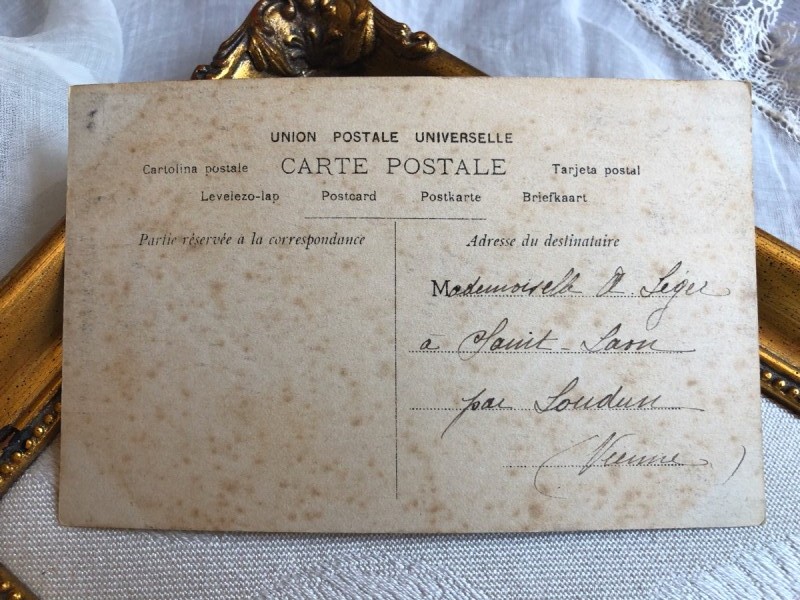 UNION POSTALE UNIVERSELLE
Cartolina postale CARTE POSTALE Tarjeta postal
Levelezo-lap Postcard Postkarte Briefkaart
Partie réservée à la correspondance
Adresse du destinataire
Mademoiselle A. Léger
à Saint-Laon
par Loudun
(Vienne)